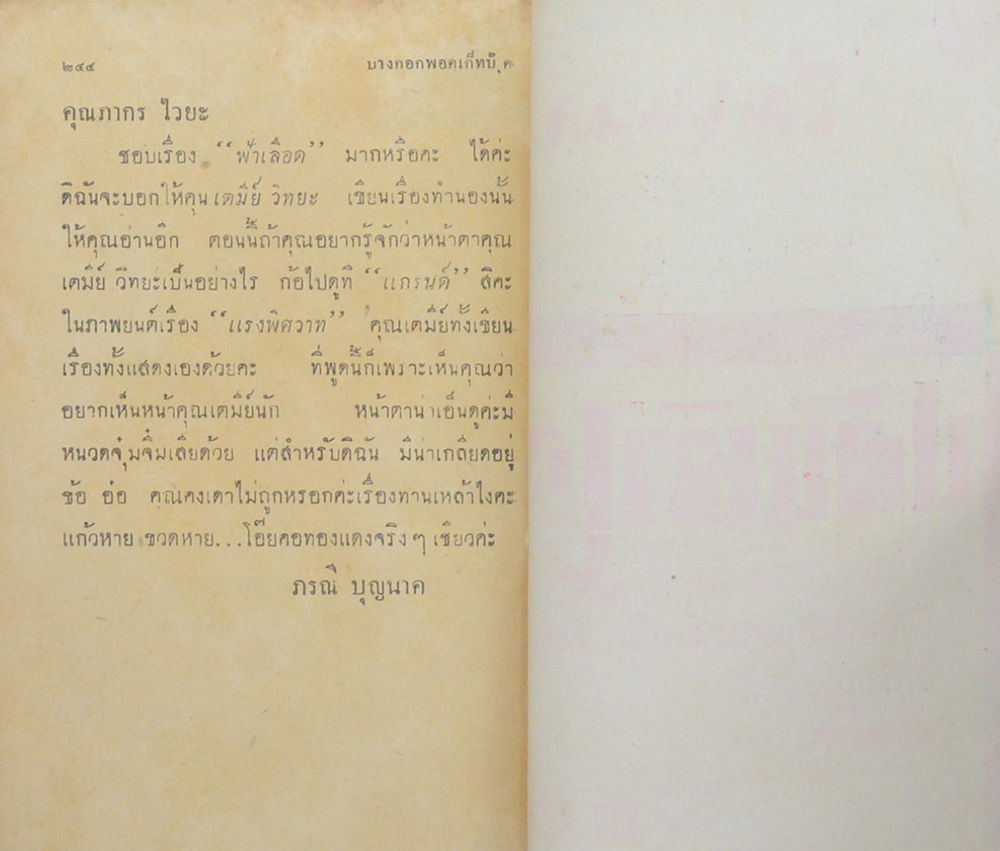 ๒๔๔ บางกอกพอคเก็ทบุ๊ค
คุณภากร ไวยะ
ชอบเรื่อง “ฟ้าเลือด” มากหรือคะ ได้ค่ะ
ดิฉันจะบอกให้คุณเตมีย์ วิทยะ เขียนเรื่องทำนองนั้น
ให้คุณอ่านอีก ตอนนี้ถ้าคุณอยากรู้จักว่าหน้าตาคุณ
เตมีย์ วิทยะเป็นอย่างไร ก้อไปดูที่ “แกรนด์” สิคะ
ในภาพยนต์เรื่อง “แรงพิศวาท” คุณเตมีย์ทั้งเขียน
เรื่องทั้งแสดงเองด้วยคะ ที่พูดนี้ก็เพราะเห็นคุณว่า
อยากเห็นหน้าคุณเตมีย์นัก หน้าตาน่าเอ็นดูค่ะมี
หนวดจุ๋มจิ๋มเสียด้วย แต่สำหรับดิฉัน มีน่าเกลียดอยู่
ข้อ อ๋อ คุณคงเดาไม่ถูกหรอกค่ะเรื่องทานเหล้าไงคะ
แก้วหาย ขวดหาย...โอ๊ยคอทองแดงจริง ๆ เชียวค่ะ
ภรณี บุญนาค